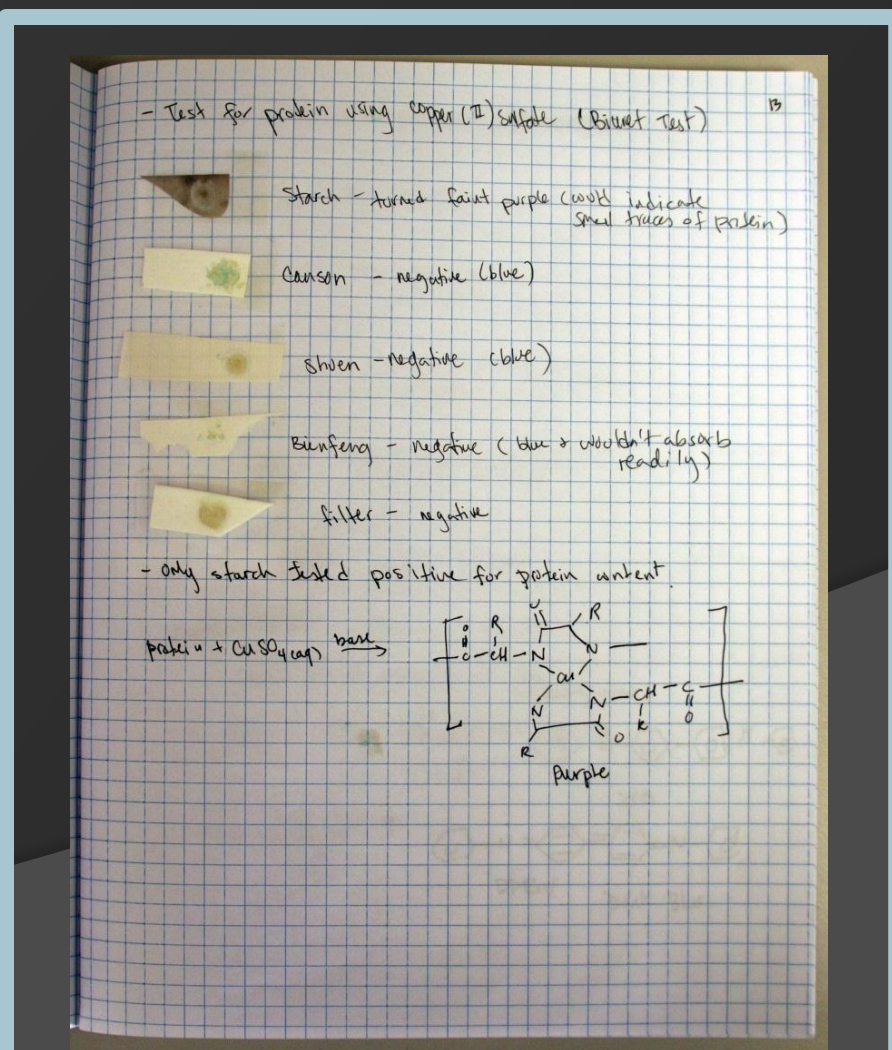 13
- Test for protein using copper (II) sulfate (Biuret Test)
Starch - turned faint purple (could indicate
small traces of protein)
Canson - negative (blue)
Shuen - negative (blue)
Bienfeng - negative (blue & wouldn't absorb
readily)
filter - negative
- Only starch tested positive for protein content.
protein + CuSO4(aq) base →
O R O R
C-CH-N N
Cu
N N-CH-C
R O R O
Purple